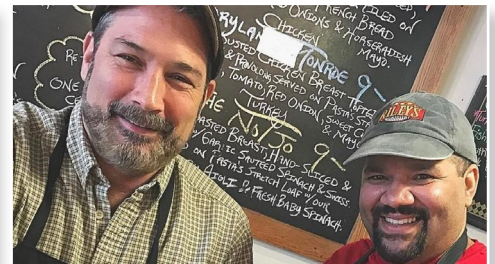 FRENCH BREAD
ONIONS & HORSERADISH
MAYO.
RYLAN
CHICKEN
TONROE 9-
CHICKEN BREAST TOPPED
& PROVOLONE SERVED ON PASTA'S
TOMATO, RED ONION, SWEET
& MAYO
THE
TURKEY
NO/JO 9-
ROASTED BREAST HAND-SLICED &
W/GARLIC SAUTEED SPINACH & SWISS
ON PASTA'S STRETCH LOAF W/OUR
AIOLI & FRESH BABY SPINACH.
RE
ONE
RILEY'S